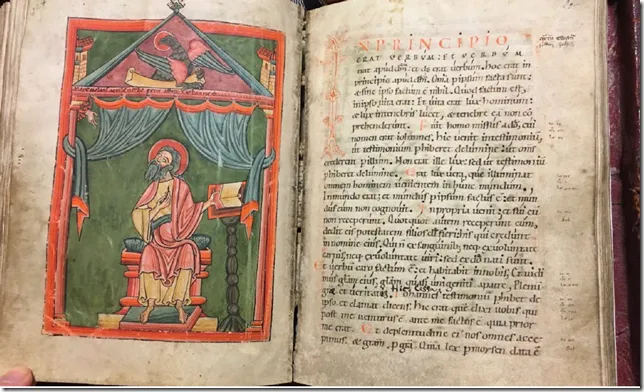 INPRINCIPIO
ERAT VERBUM: ET VERBUM
erat apud dm̄: et ds̄ erat verbum. hoc erat in
principio apud dm̄. Om̄a p ipsum facta sunt:
& sine ipso factū ē nihil. Quod factum est
in ipso vita erat: Et vita erat lux hominum:
& lux intenebris lucet, & tenebre eā non cō
prehenderunt. Fuit homo missus a dō, cui
nomen erat iohannes. hic venit intestimoniū
ut testimonium phiberet delumine: ut om̄s
crederent p illum. Non erat ille lux. sed ut testimoniū
phiberet delumine. Erat lux vera, que illuminat
omnem hominem venientem in hunc mundum,
In mundo erat: et mundus p ipsum factus ē: et mun
dus eum non cognovit. In propria venit: et sui eū
non receperunt. Quotquot autem receperunt eum,
dedit eis potestatem filios di fieri: his qui credunt
in nomine eius. Qui n̄ exsanguinib; neq; exvoluntate
carnis, neq; exvoluntate viri: sed exdō nati sunt.
Et verbū caro factum ē: et habitavit innobis. Et vidi
mus gl̄am eius, gl̄am quasi unigeniti apatre. Pleni
gr̄e et veritatis. Iohannes testimoniū phibet de
ipso et clamat dicens: Hic erat quē dixi vobis qui
post me venturus ē ante me factus ē quia prior
me erat. Et deplenitudine ei nos omnes acce
pimus & gram p gr̄a. Quia lex p moysen data ē